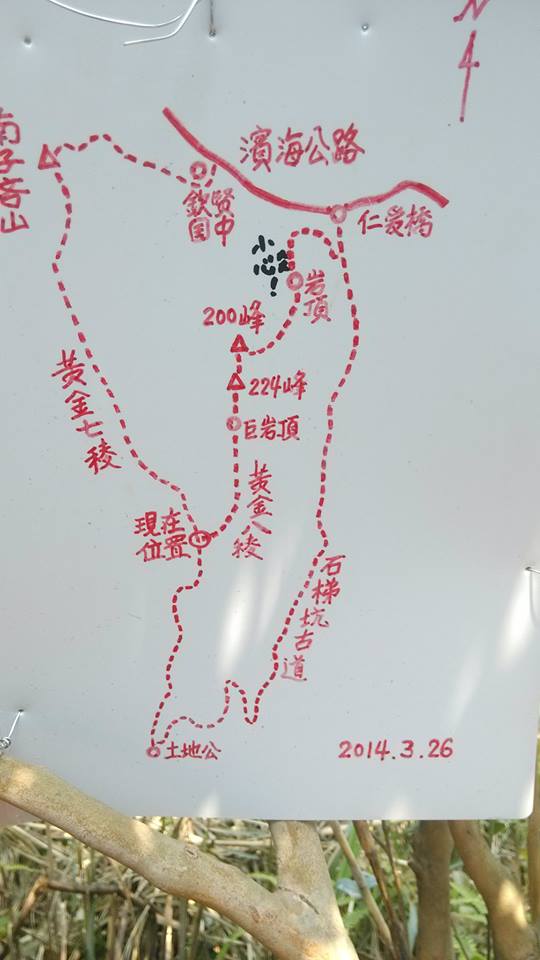 N
南子吝山
濱海公路
欽賢
国中
仁愛橋
小心!
岩頂
200峰
224峰
巨岩頂
黃金七稜
黃金八稜
現在
位置
石梯坑古道
土地公
2014.3.26